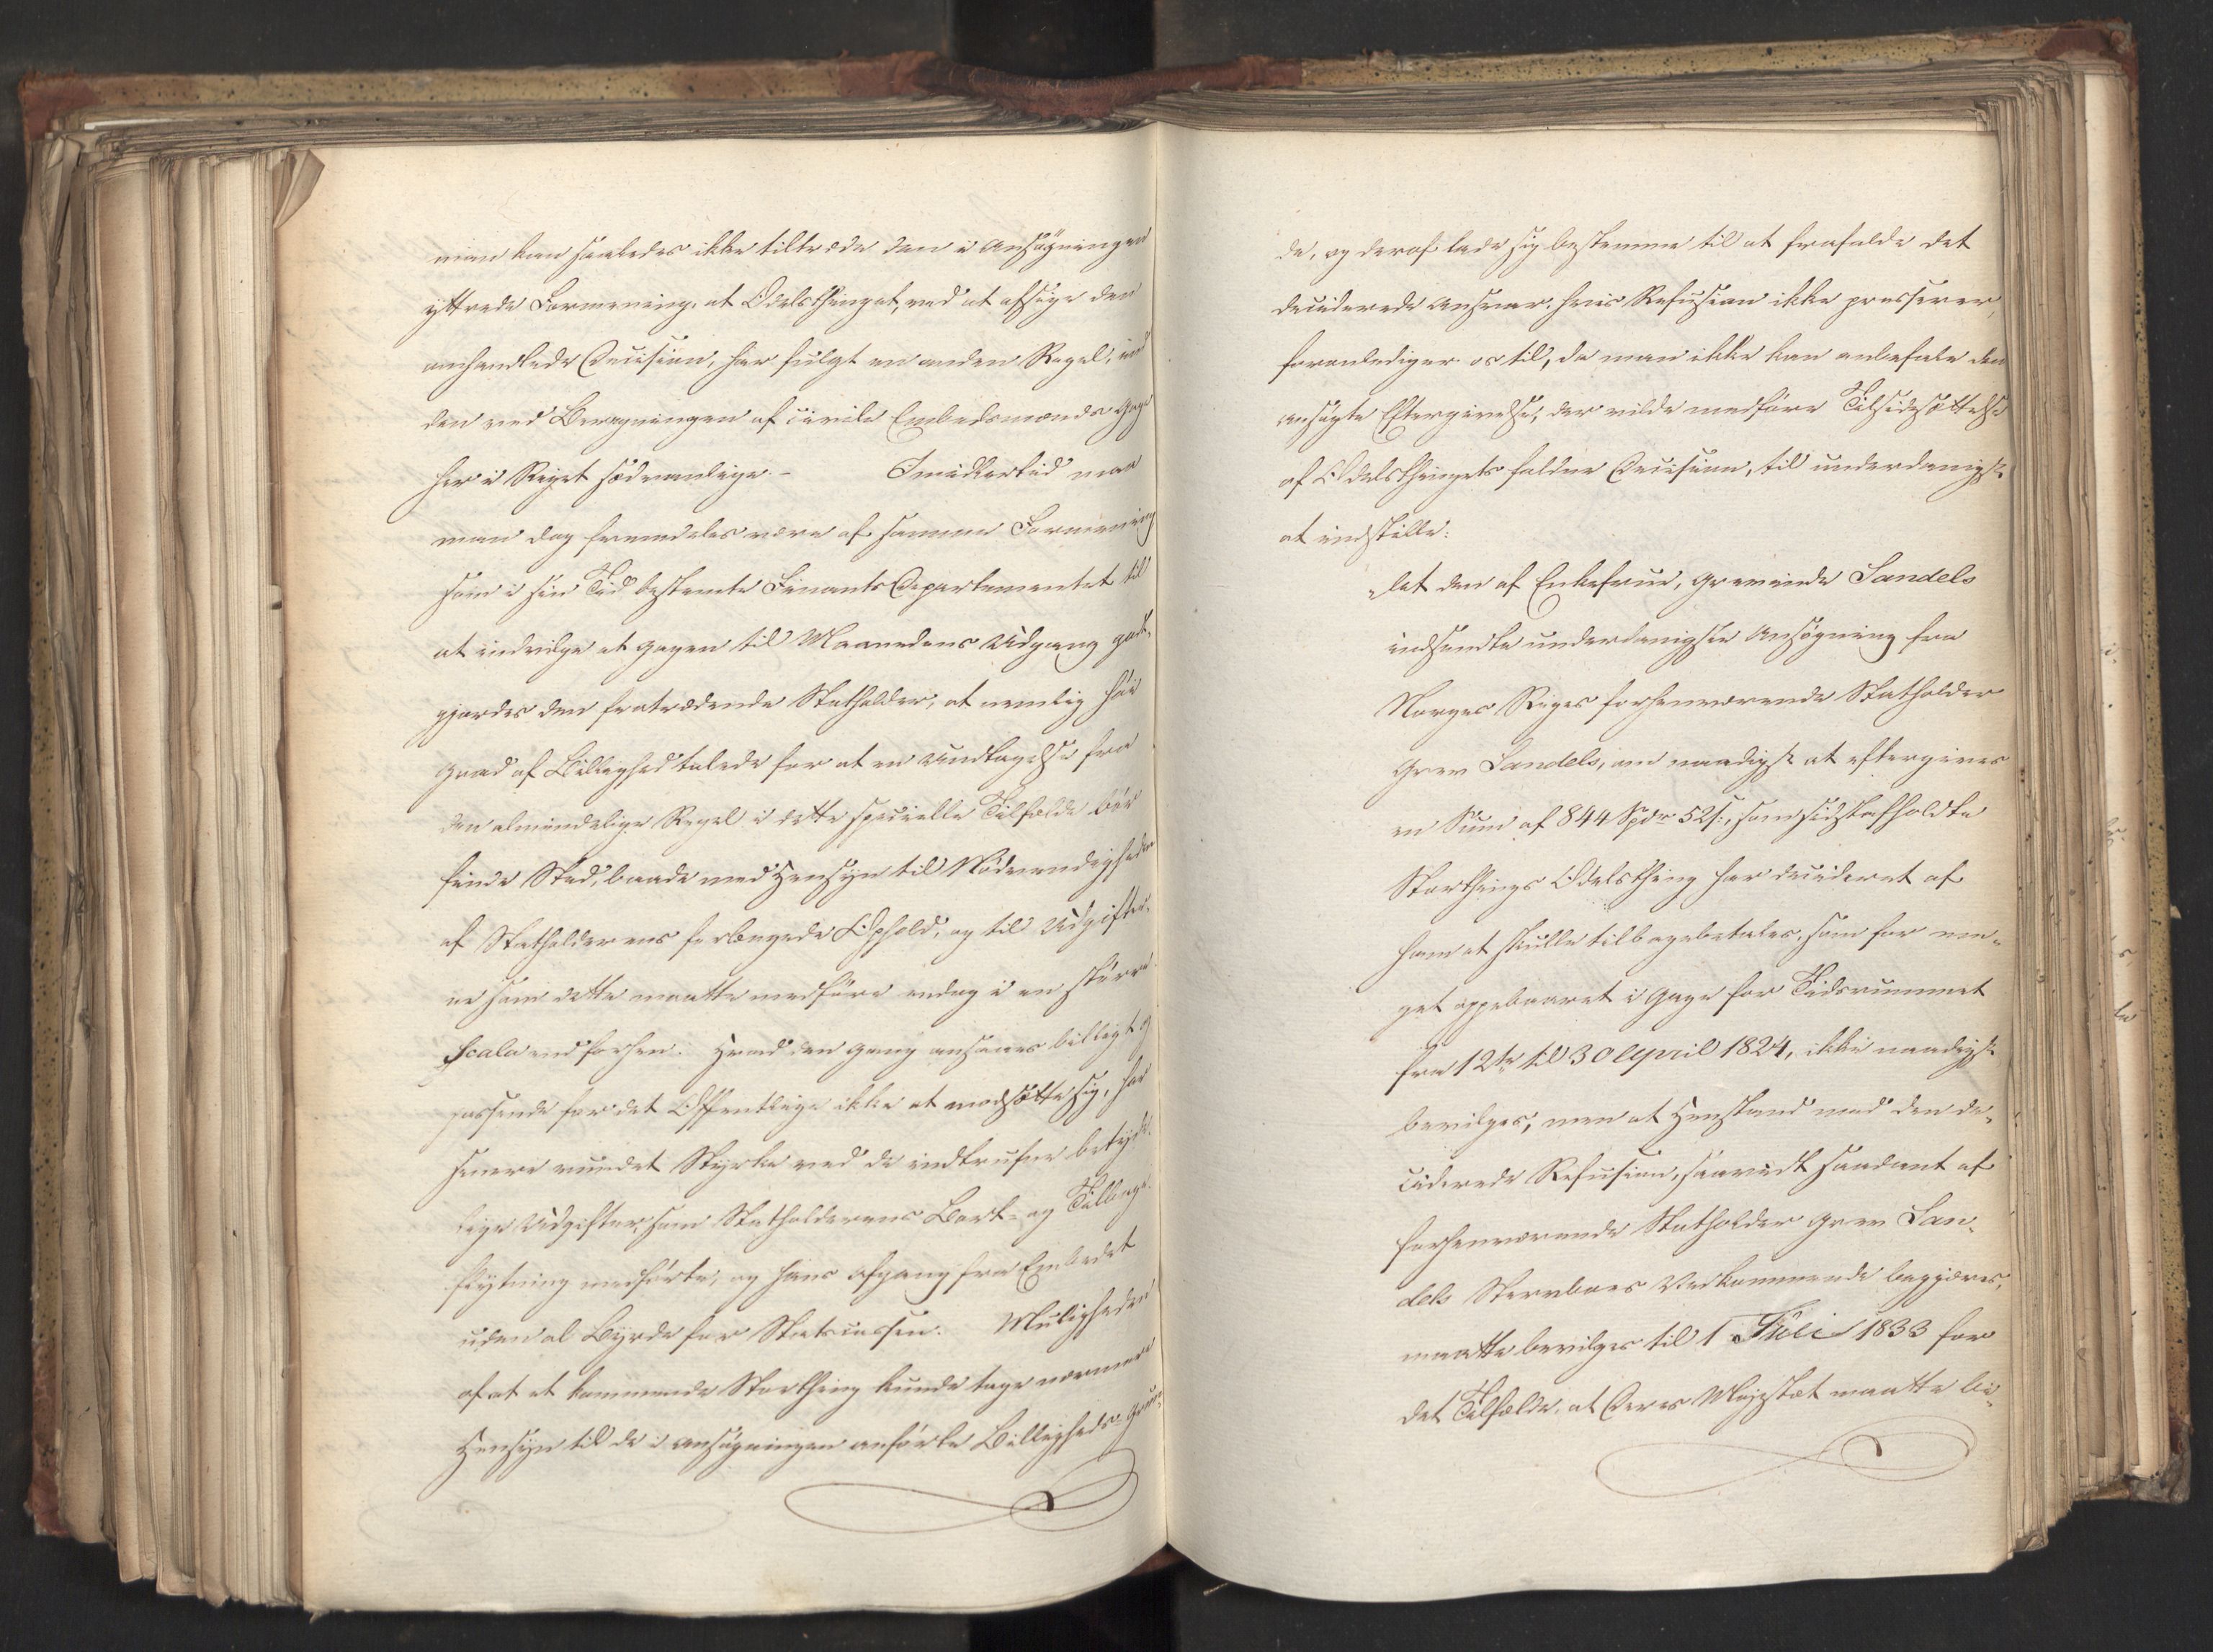 man kan saaledes ikke tiltræde den i Ansøgningen
yttrede Formening, at Odelsthinget, ved at afsige den
omhandlede Decision, har fulgt en anden Regel, end
den ved Beregningen af civile Embedsmænds Gage
her i Riget sædvanlige. - Imidlertid maa
man dog fremdeles være af samme Formening
som i sin Tid bestemte Finants Departementet til
at indvilge at Gagen til Maanedens Udgang godt-
gjordes den fratrædende Statholder, at nemlig høi
Grad af Billighed talede for at en Undtagelse fra
den almindelige Regel i dette specielle Tilfælde bør
finde Sted, baade med Hensyn til Nødvendigheden
af Statholderens forlængede Ophold, og til Udgifter-
ne som dette maatte medføre endog i en større
Scala end forhen. Hvad den Gang ansaaes billigt og
passende for det Offentlige ikke at modsætte sig, har
senere vundet Styrke ved de indtrufne betyde-
lige Udgifter, som Statholderens Bort- og Tilbage-
flytning medførte, og hans Afgang fra Embedet
uden al Byrde for Statscassen. Muligheden
af at et kommende Storthing kunde tage nærmere
Hensyn til de i Ansøgningen anførte Billigheds-Grun-
de, og deraf lade sig bestemme til at frafalde det
deciderede Ansvar, hvis Refusion ikke presserer,
foranlediger os til, da man ikke kan anbefale den
ansøgte Eftergivelse, der vilde medføre Tilsidesættelse
af Odelsthingets faldne Decision, til underdanigst
at indstille:
"at den af Enkefrue, Grevinde Sandels
indsendte underdanigste Ansøgning fra
Norges Riges forhenværende Statholder
Grev Sandels, om naadigst at eftergives
en Sum af 844 Spdr 52 s:, som sidstafholdte
Storthings Odelsthing har decideret af
ham at skulle tilbagebetales, som for me-
get oppebaaret i Gage for Tidsrummet
fra 12te til 30 April 1824, ikke naadigst
bevilges, men at Henstand med den de-
ciderede Refusion, saavidt saadant af
forhenværende Statholder Grev San-
dels Stervboes Vedkommende begjæres,
maatte bevilges til 1 Juli 1833 for
det Tilfælde, at Deres Majestæt maatte bi-